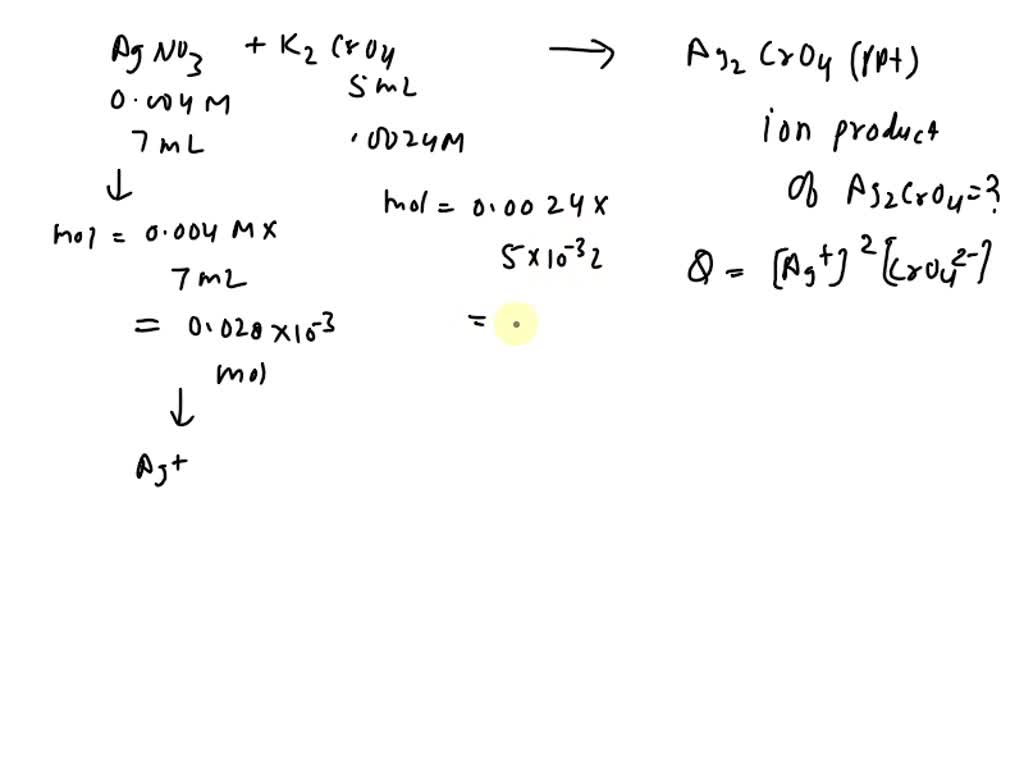 AgNO3 + K2CrO4 → Ag2CrO4 (ppt)
0.004M 5mL
7mL .0024M
ion product
of Ag2CrO4=?
↓
mol = 0.004 M x
7mL
mol = 0.0024 x
5x10-3L
Q = [Ag+]2[CrO42-]
= 0.028x10-3
mol
=
↓
Ag+